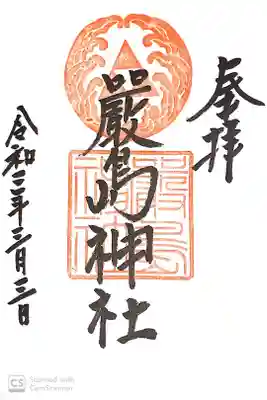 奉拝
嚴島神社
令和二年三月三日
CS Scanned with
CamScanner